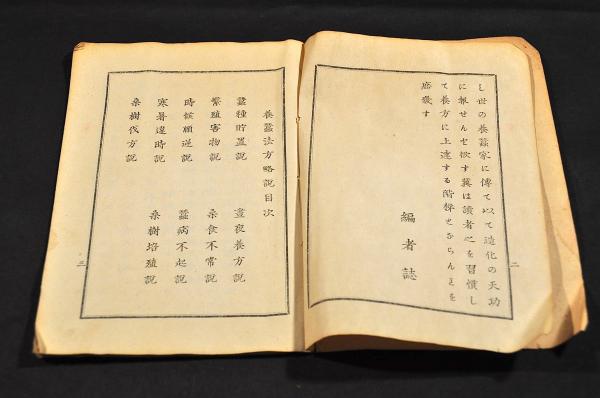 し世の養蚕家に傳て以て造化の天功
に報せんと欲す冀は讀者之を習慣し
て養方に上達する階梯とならんことを
庶幾す
編者誌
二
養蚕法方略説目次
蚕種貯置説
晝夜養方説
繁殖害物説
桑食不常説
時候順逆説
蚕病不起説
寒暑違時説
桑樹培殖説
桑樹伐方説
三